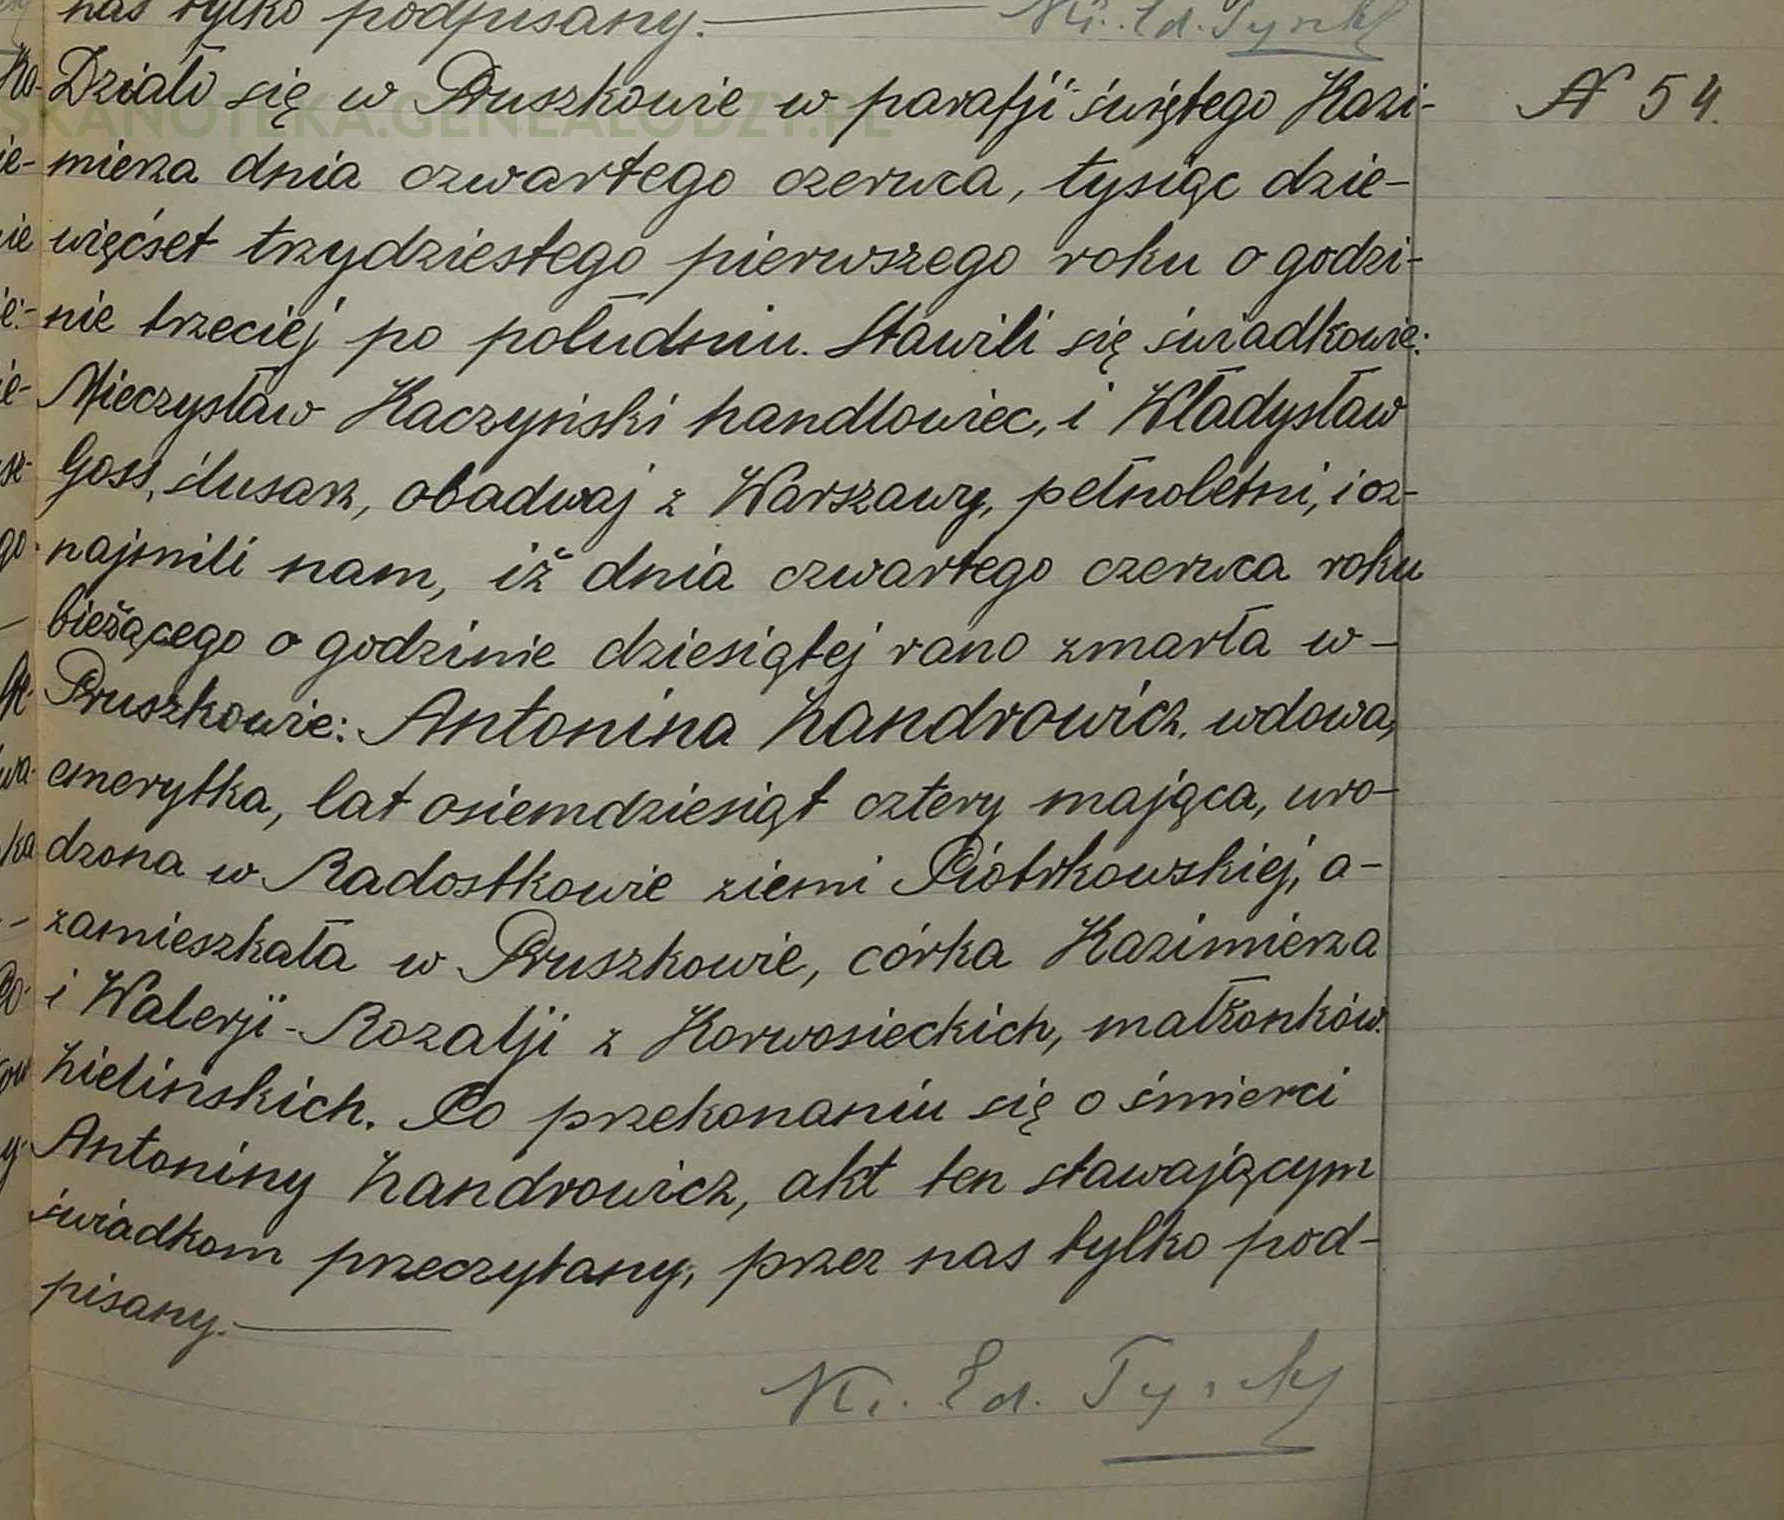 nas tylko podpisany.
Działo się w Pruszkowie w parafji świętego Kazi- N 54.
SKANOTEKA.GENEALODZY.PL
mierza dnia czwartego czerwca, tysiąc dzie-
więćset trzydziestego pierwszego roku o godzi-
nie trzeciej po południu. Stawili się świadkowie:
Mieczysław Kaczyński handlowiec, i Władysław
Goss, ślusarz, obadwaj z Warszawy, pełnoletni, i oz-
najmili nam, iż dnia czwartego czerwca roku
bieżącego o godzinie dziesiątej rano zmarła w-
Pruszkowie: Antonina Handrowicz, wdowa,
emerytka, lat osiemdziesiąt cztery mająca, uro-
dzona w Radostkowie ziemi Piotrkowskiej, a-
zamieszkała w Pruszkowie, córka Kazimierza
i Walerji-Rozalji z Korwosieckich, małżonków
Zielińskich. Po przekonaniu się o śmierci
Antoniny Handrowicz, akt ten stawającym
świadkom przeczytany, przez nas tylko pod-
pisany.